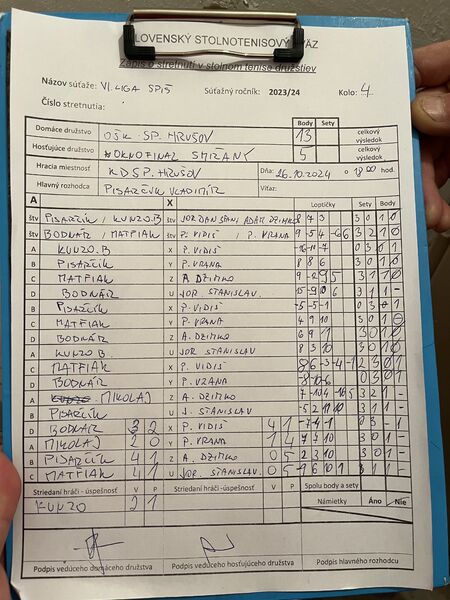 SLOVENSKÝ STOLNOTENISOVÝ ZVÄZ
Zápis o stretnutí v stolnom tenise družstiev
Názov súťaže: VI. LIGA SPIŠ Súťažný ročník: 2023/24 Kolo: 4
Číslo stretnutia:
Body Sety
Domáce družstvo OŠK SP. HRUŠOV 13 celkový výsledok
Hosťujúce družstvo OKNOFINAL SMIŽANY 5 celkový výsledok
Hracia miestnosť KD SP. HRUŠOV Dňa: 16.10.2024 o 18 00 hod.
Hlavný rozhodca PISARČÍK VLADIMÍR Víťaz:
A X Loptičky Body Sety
štv PISARČÍK / KUNZO.B štv JORDAN STANI ADAM DZIMKO 8 7 3 3 0 1 0
štv BODNÁR / MATFIAK štv P. VIDIŠ / P. VRANA 9 -5 4 -6 6 3 2 1 0
A KUNZO.B X P. VIDIŠ 0 3 0 1
B PISARČÍK Y P. VRANA 8 8 6 3 0 1 0
C MATFIAK Z A DZIMKO 9 -2 9 5 3 1 1 0
D BODNÁR U JOR. STANISLAV. 3 1 1 -
B PISARČÍK X P. VIDIŠ -5 -5 -1 0 3
C MATFIAK Y P. VRANA 4 9 10 3 0 1 0
D BODNÁR Z A. DZIMKO 6 9 11 3 0 1 0
A KUNZO B. U JOR STANISLAV 8 3 10 3 0 1 0
C MATFIAK X P. VIDIŠ
D BODNÁR Y P. VRANA 0 3 0 1
A MIKOLAJ Z A. DZIMKO 3 2 1 -
B PISARČÍK U J. STANISLAV 3 1 1 -
D BODNÁR 3 2 X P. VIDIŠ 4 1 -7 -4 -1 0 3 - 1
A MIKOLAJ 2 0 Y P. VRANA 1 4 7 7 10 3 0 1 -
B PISARČÍK 4 1 Z A. DZIMKO 0 5 2 8 2 3 0 1 -
C MATFIAK 4 1 U JOR STANISLAV. 0 5 3 1 1 -
Striedaní hráči - úspešnosť V P Striedaní hráči - úspešnosť V P Spolu body a sety
KUNZO 2 1 Námietky Áno Nie
Podpis vedúceho domáceho družstva Podpis vedúceho hosťujúceho družstva Podpis hlavného rozhodcu